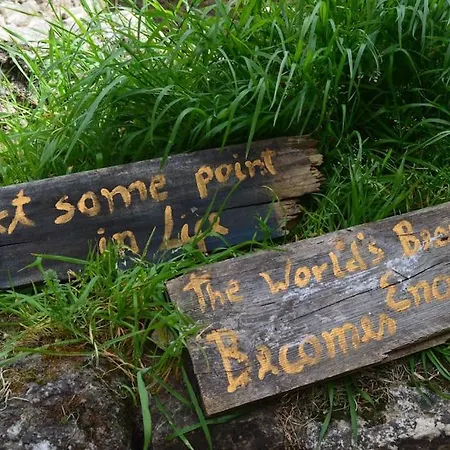 At some point
in Life
The World's Beau
Becomes Enou